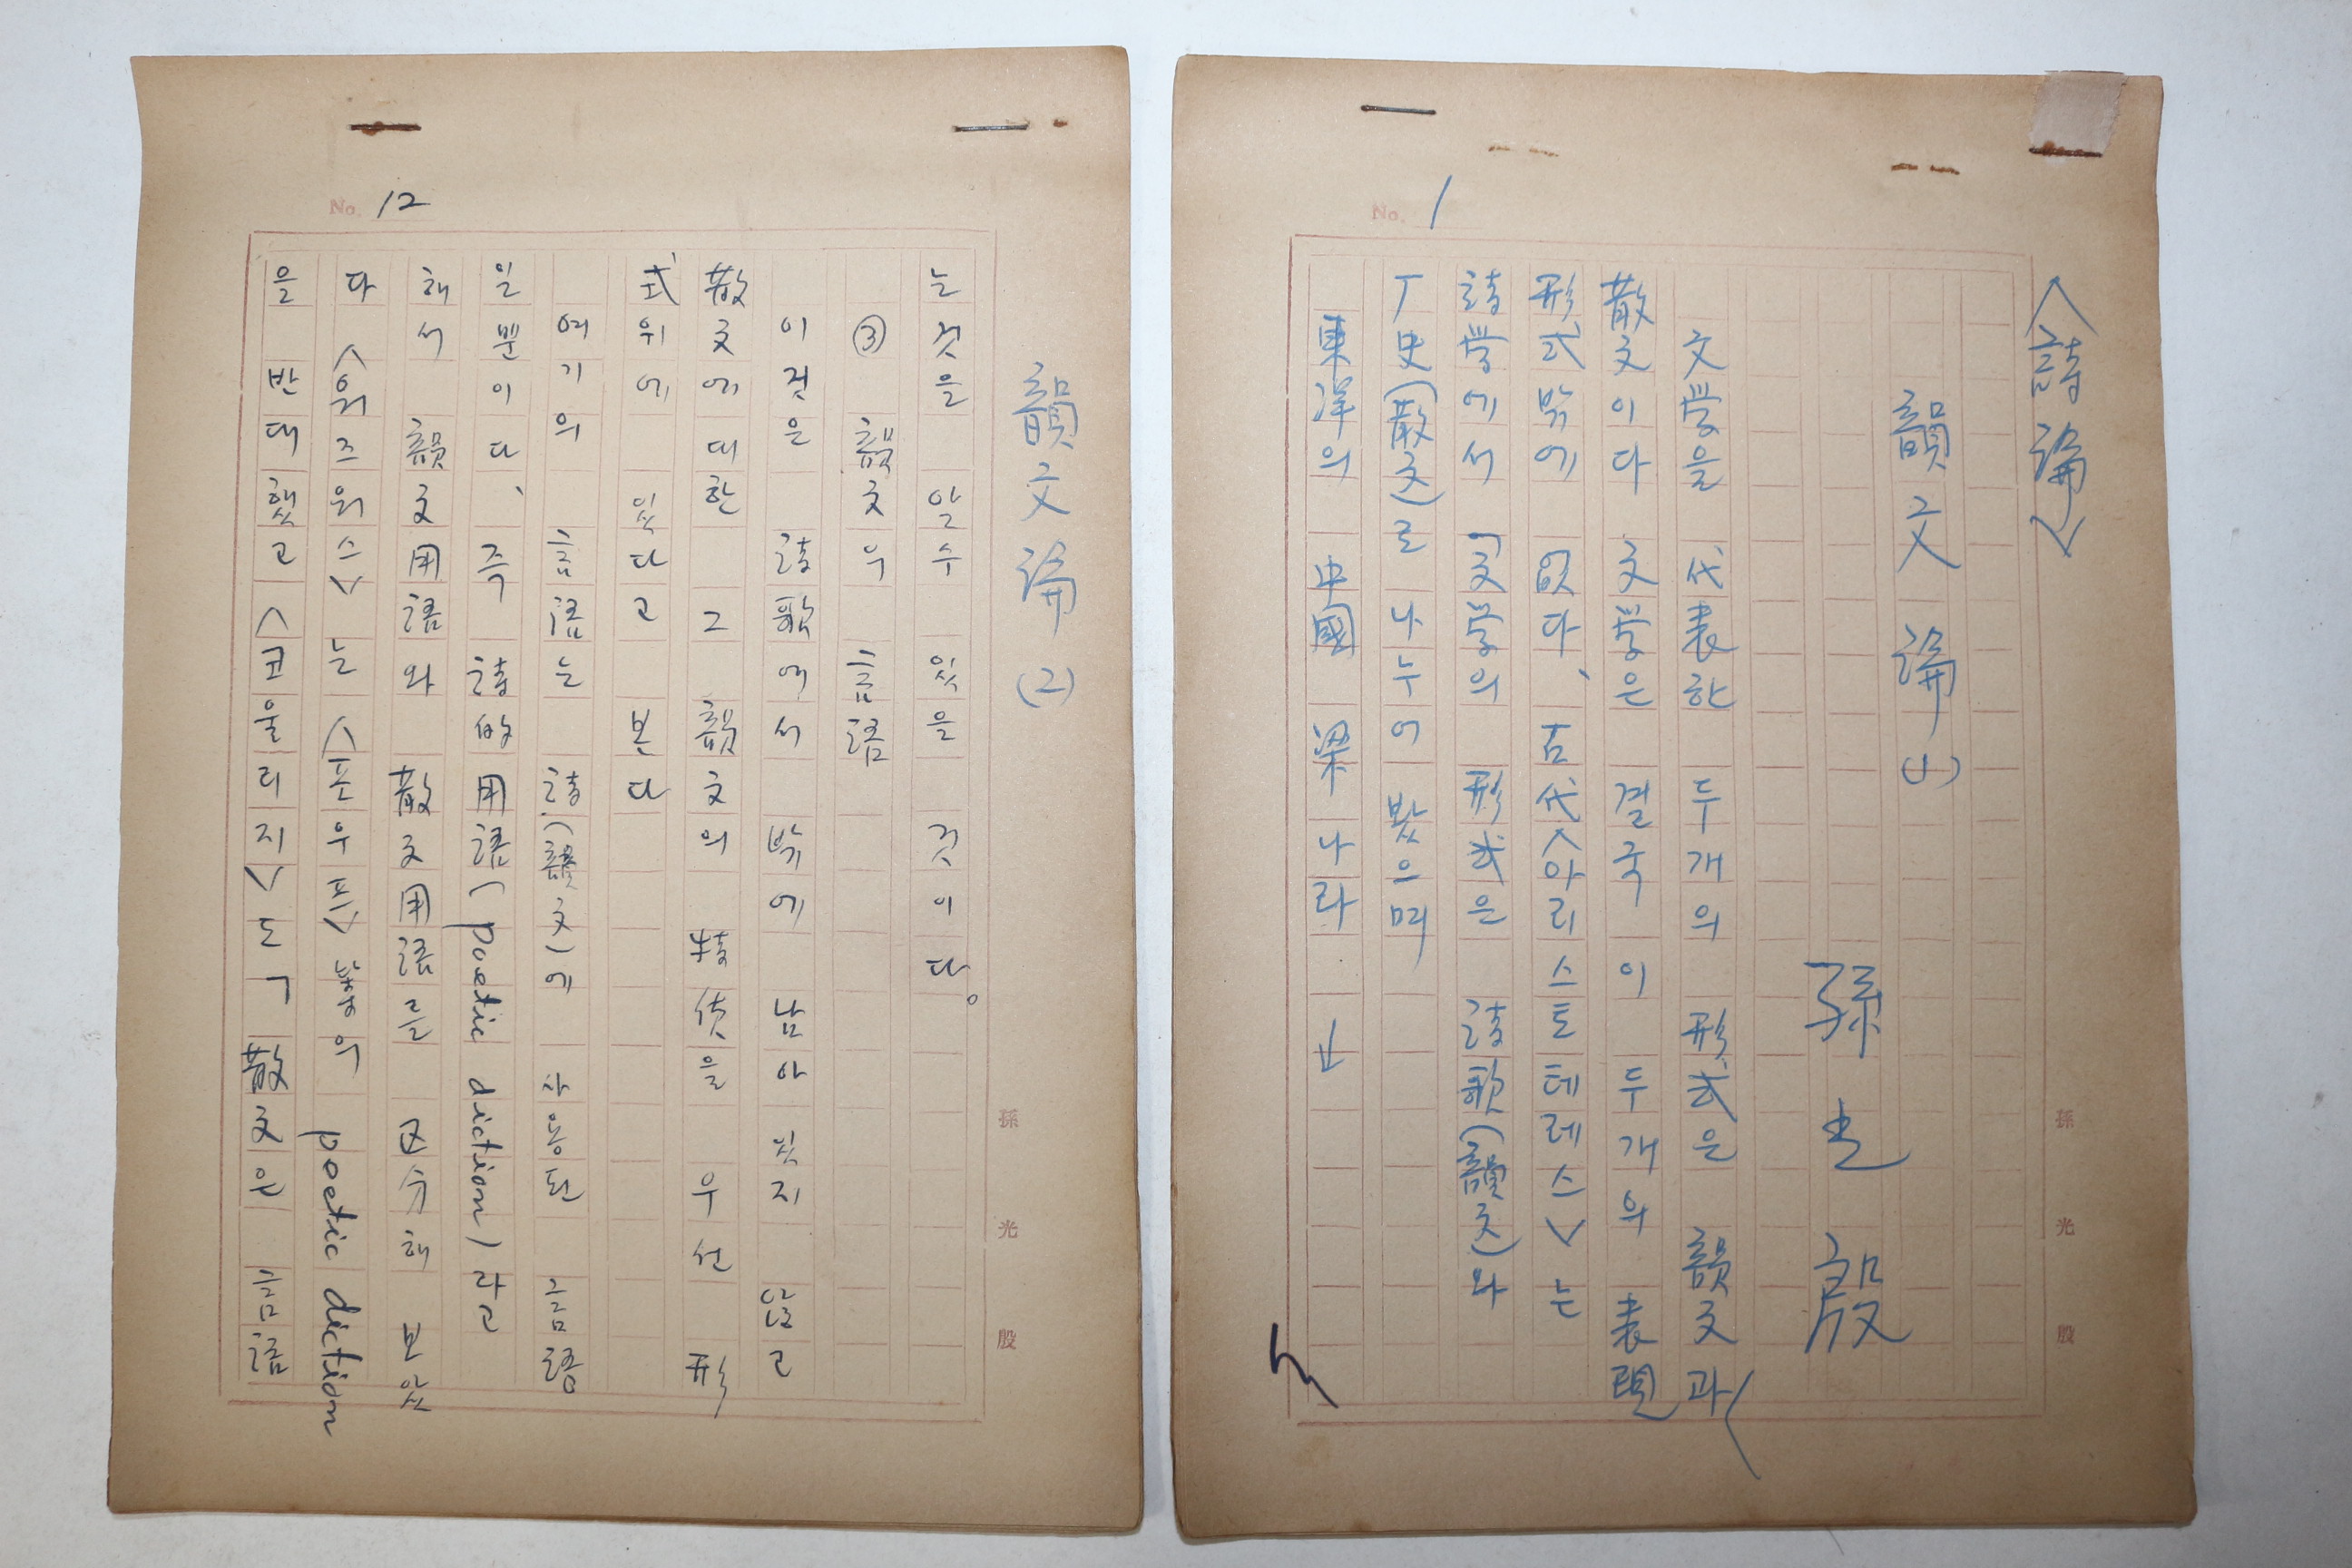 No. 1
<詩論>
韻文論(1)
孫光殷
文学을 代表한 두개의 形式은 韻文과
散文이다 文学은 결국 이 두개의 表現
形式밖에 없다、古代<아리스토테레스>는
詩学에서 「文学의 形式은 詩歌(韻文)와
史(散文)로 나누어 봤으며
東洋의 中國 梁나라
孫光殷
No. 12
韻文論(2)
는것을 알수 있을 것이다。
③ 韻文의 言語
이것은 詩歌에서 밖에 남아 있지 않고
散文에 대한 그 韻文의 特徵을 우선 形
式위에 있다고 본다
여기의 言語는 詩(韻文)에 사용된 言語
일뿐이다、즉 詩的用語(poetic diction)라고
해서 韻文用語와 散文用語를 区分해 보았
다 <워즈워스>는 <포우프> 등의 poetic diction
을 반대했고 <코울리지>도 「散文은 言語
孫光殷